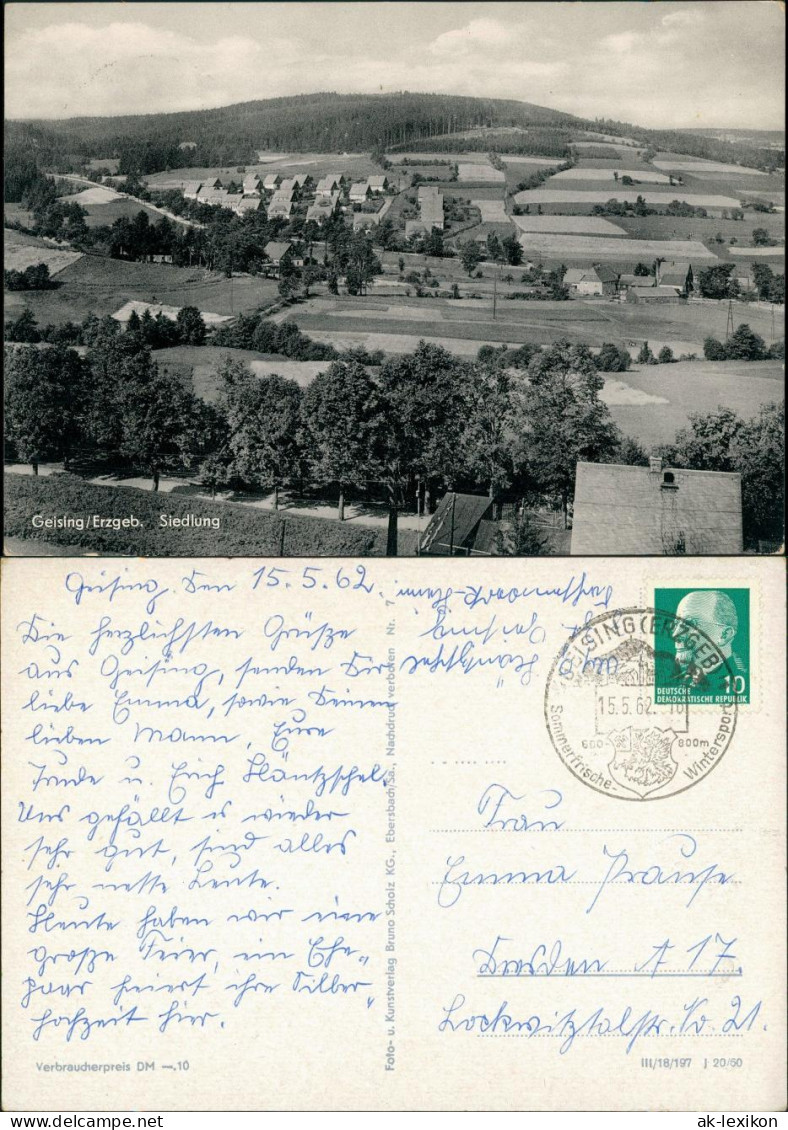 Geising/Erzgeb. Siedlung
Geising, den 15.5.62.
Die herzlichsten Grüße
aus Geising, senden Dir
liebe Emma, sowie Deinen
lieben Mann, Eure
Trude u. Erich Häntzschel,
Uns gefällt es wieder
sehr gut, sind alles
sehr nette Leute.
Heute haben wir eine
große Feier, ein Ehe„
paar feiert ihre Silber„
hochzeit hier.
Verbraucherpreis DM —.10
Foto- u. Kunstverlag Bruno Scholz KG., Ebersbach/Sa., Nachdruck verboten Nr. 7
Häntzschel
Geising
GEISING (ERZGEB)
15.5.62.-10
600- 800m
Sommerfrische- Wintersport
DEUTSCHE
DEMOKRATISCHE REPUBLIK
10
Frau
Emma Krause
Dresden A 17.
Lockwitztalstr. No 21.
III/18/197 J 20/60
ak-lexikon.com